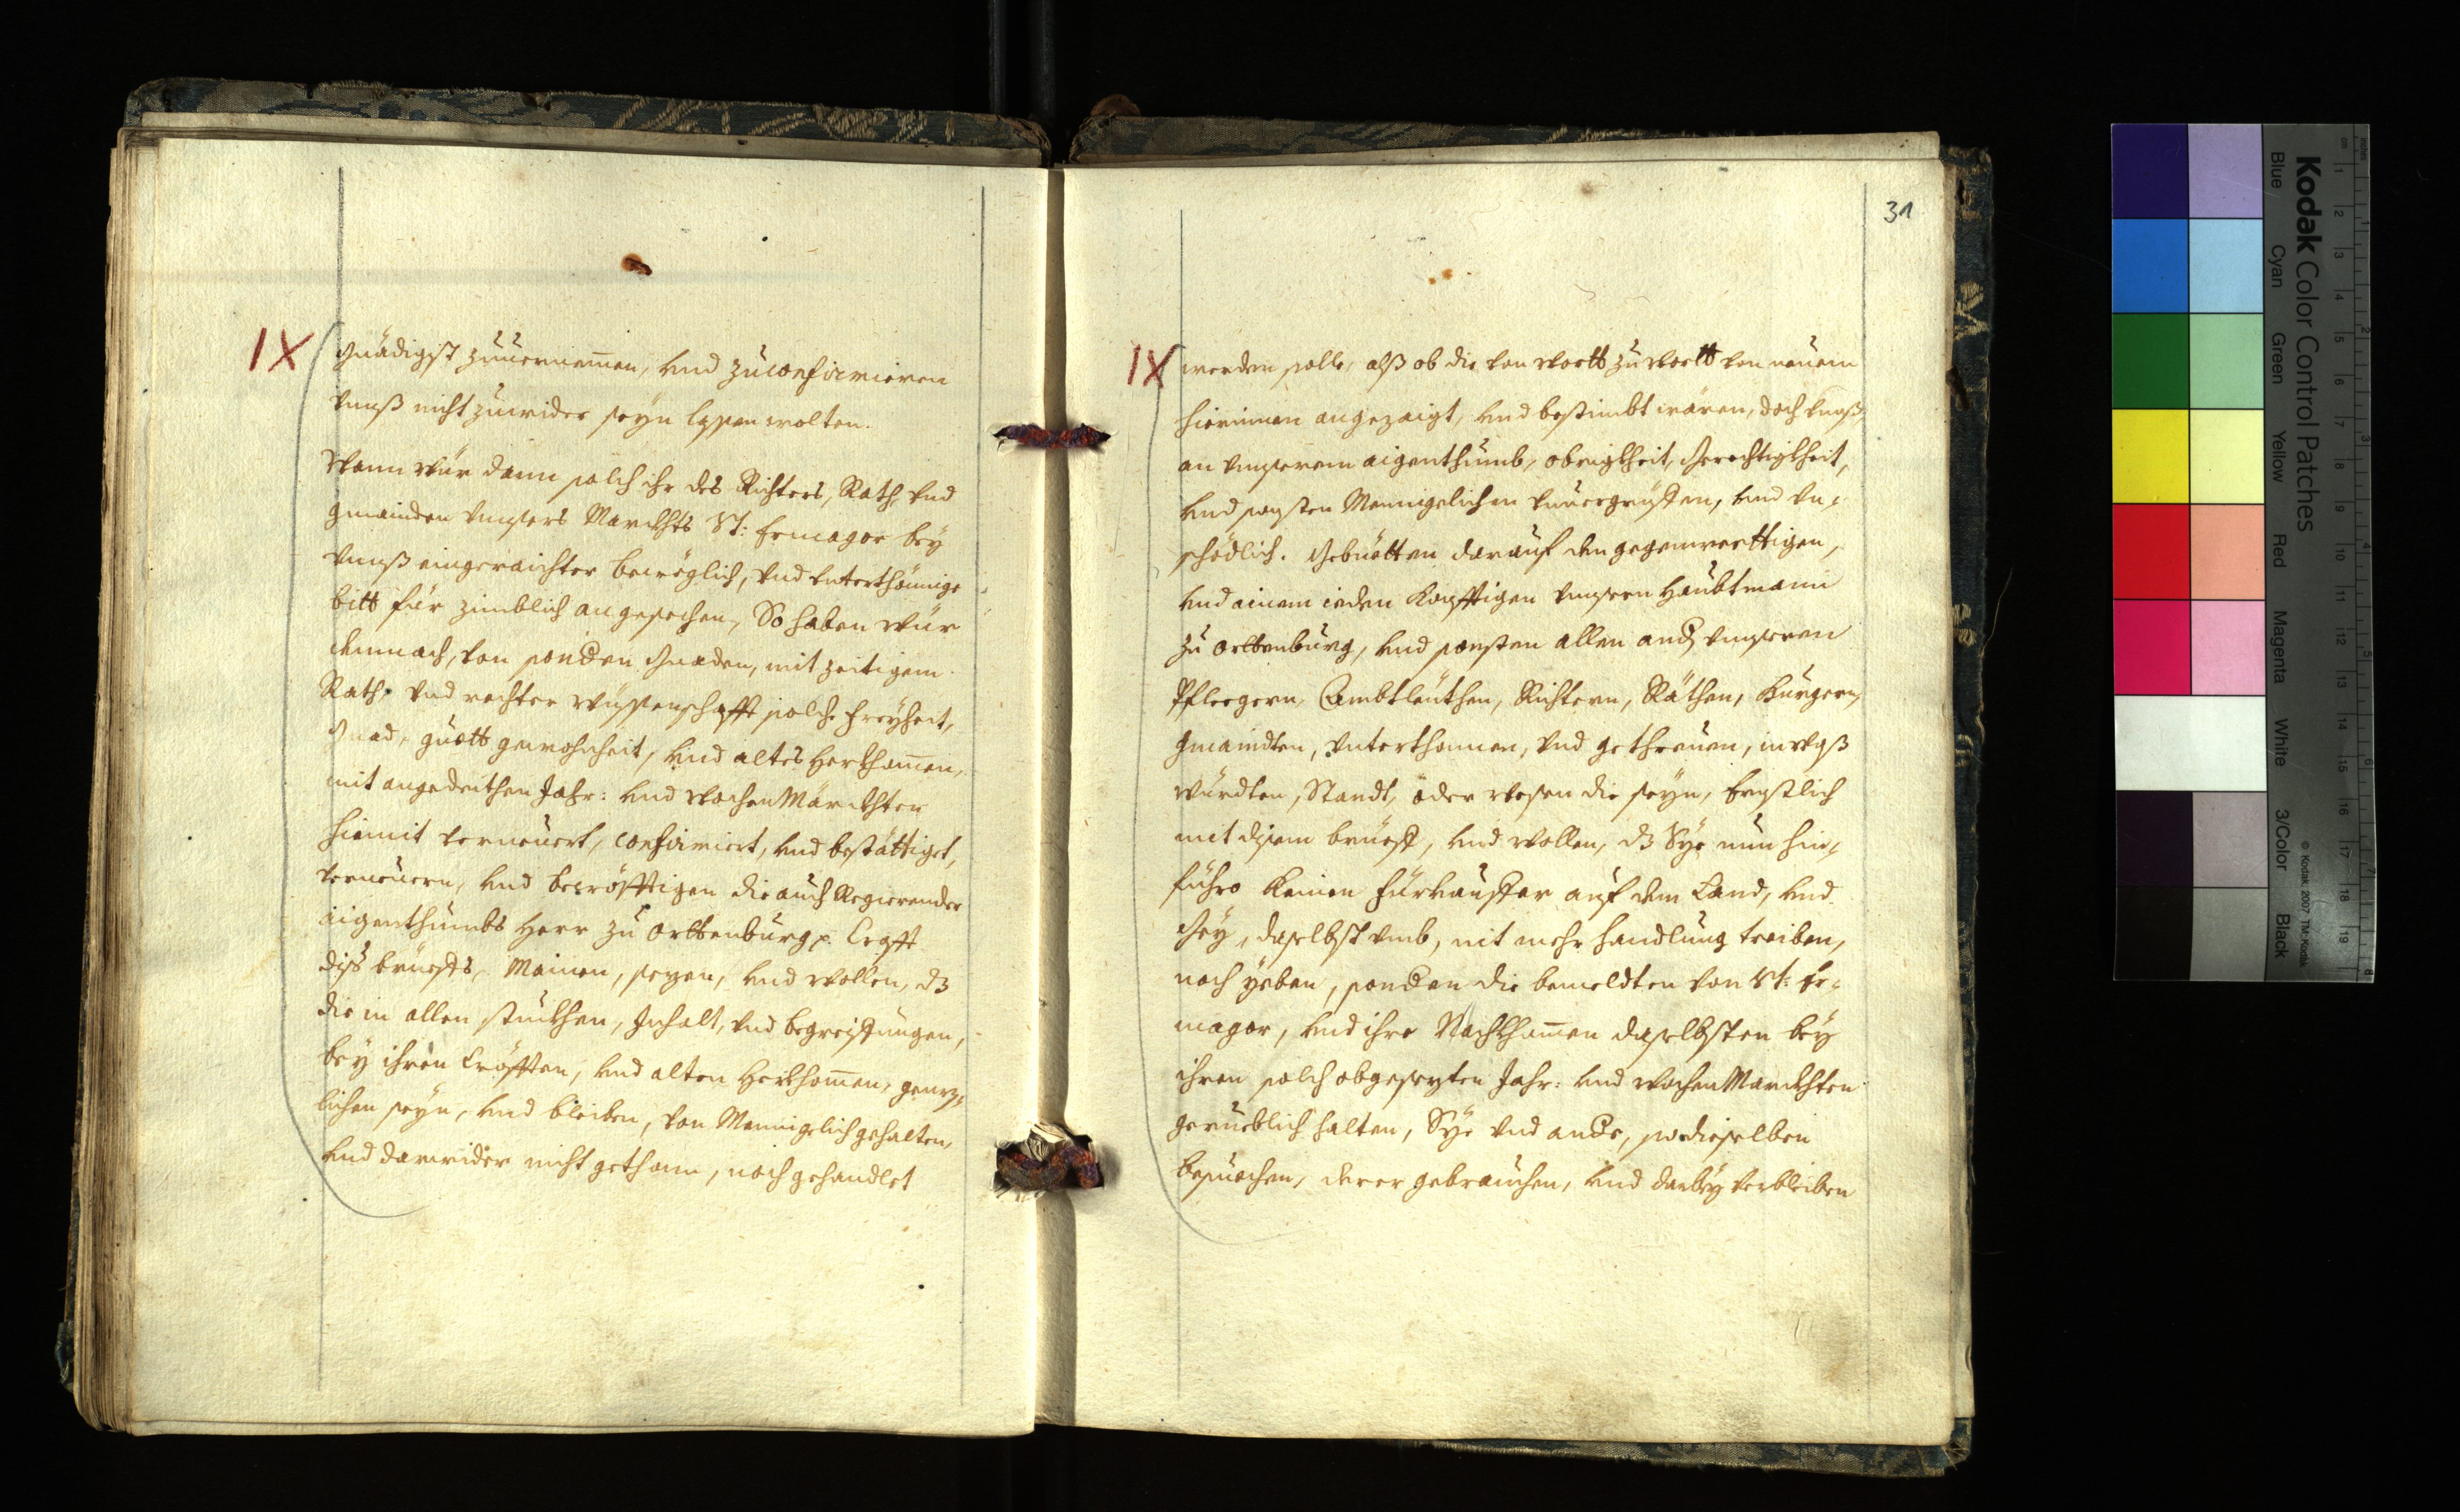 IX
Gnädigist zuuernem̄en, vnd zu confirmieren
vnnß nicht zuwider seyn lassen wolten.
Wann wür dann solch ihr des Richters, Rath, vnd
gmainden vnnsers Marckhts St: Ermagor bey
vnnß eingeraichter beweglich, vnd vnterthönnige
bitt für zimblich angesechen, So haben wür
demnach, von sondern Gnaden, mit zeitigem
Rath, vnd rechter wüssenschafft solche Freyheit,
Gnad, guett gewohnheit, vnd altes Herkhom̄en,
mit angedeithen Jahr: vnd Wochen Märckhten
hiemit verneuert, confirmiert, vnd bestättiget,
verneuern, vnd becröfftigen die auch Regierender
aigenthumbs Herr zu Orttenburg p. Crafft
diß brüeffs, Mainen, sezen, vnd wollen, dz
die in allen stuckhen, Inhalt, vnd begreiffungen,
bey ihren Cröfften, vnd alten Herkhom̄en, genz-
lichen seyn, vnd bleiben, von Mennigelich gehalten,
vnd darwider nicht gethann, noch gehandlet
31
IX
werden solle, alß ob die von Wortt zu Wortt von neuem
hierinnen angezaigt, vnd bestimbt wären, doch vnnß,
an vnnserem aigenthumb, obrigkheit, Gerechtigkheit,
vnd sonsten Mennigelichen vnuergriffen, vnd vn-
schödlich. Gebüetten darauf den gegenwerttigen,
vnd ainem ieden Konfftigen vnnsern Haubtmann
zu Orttenburg, vnd sonsten allen and: vnnseren
Pfleegern, Ambtleuthen, Richtern, Räthen, Burgern,
Gmaindten, vnterthonnen, vnd gethreuen, in waß
würdten, Standt, oder Wesen die seyn, Ernstlich
mit disem brüeff, vnd wollen, dz Sye nun hin-
führo keinen fürkauffer auf dem Land, vnd
Gey, daselbst vmb, nit mehr handlung treiben,
noch yeben, sondern die bemeldten von St: Er-
magor, vnd ihre Nachkhom̄en daselbsten bey
ihren solch obgesezten Jahr: vnd Wochen Marckhten
gerueblich halten, Sye vnd andre, so dieselben
besuechen, derer gebrauchen, vnd darbey verbleiben
Kodak Color Control Patches
Blue Cyan Green Yellow Red Magenta White 3/Color Black
© Kodak, 2007 TM: Kodak